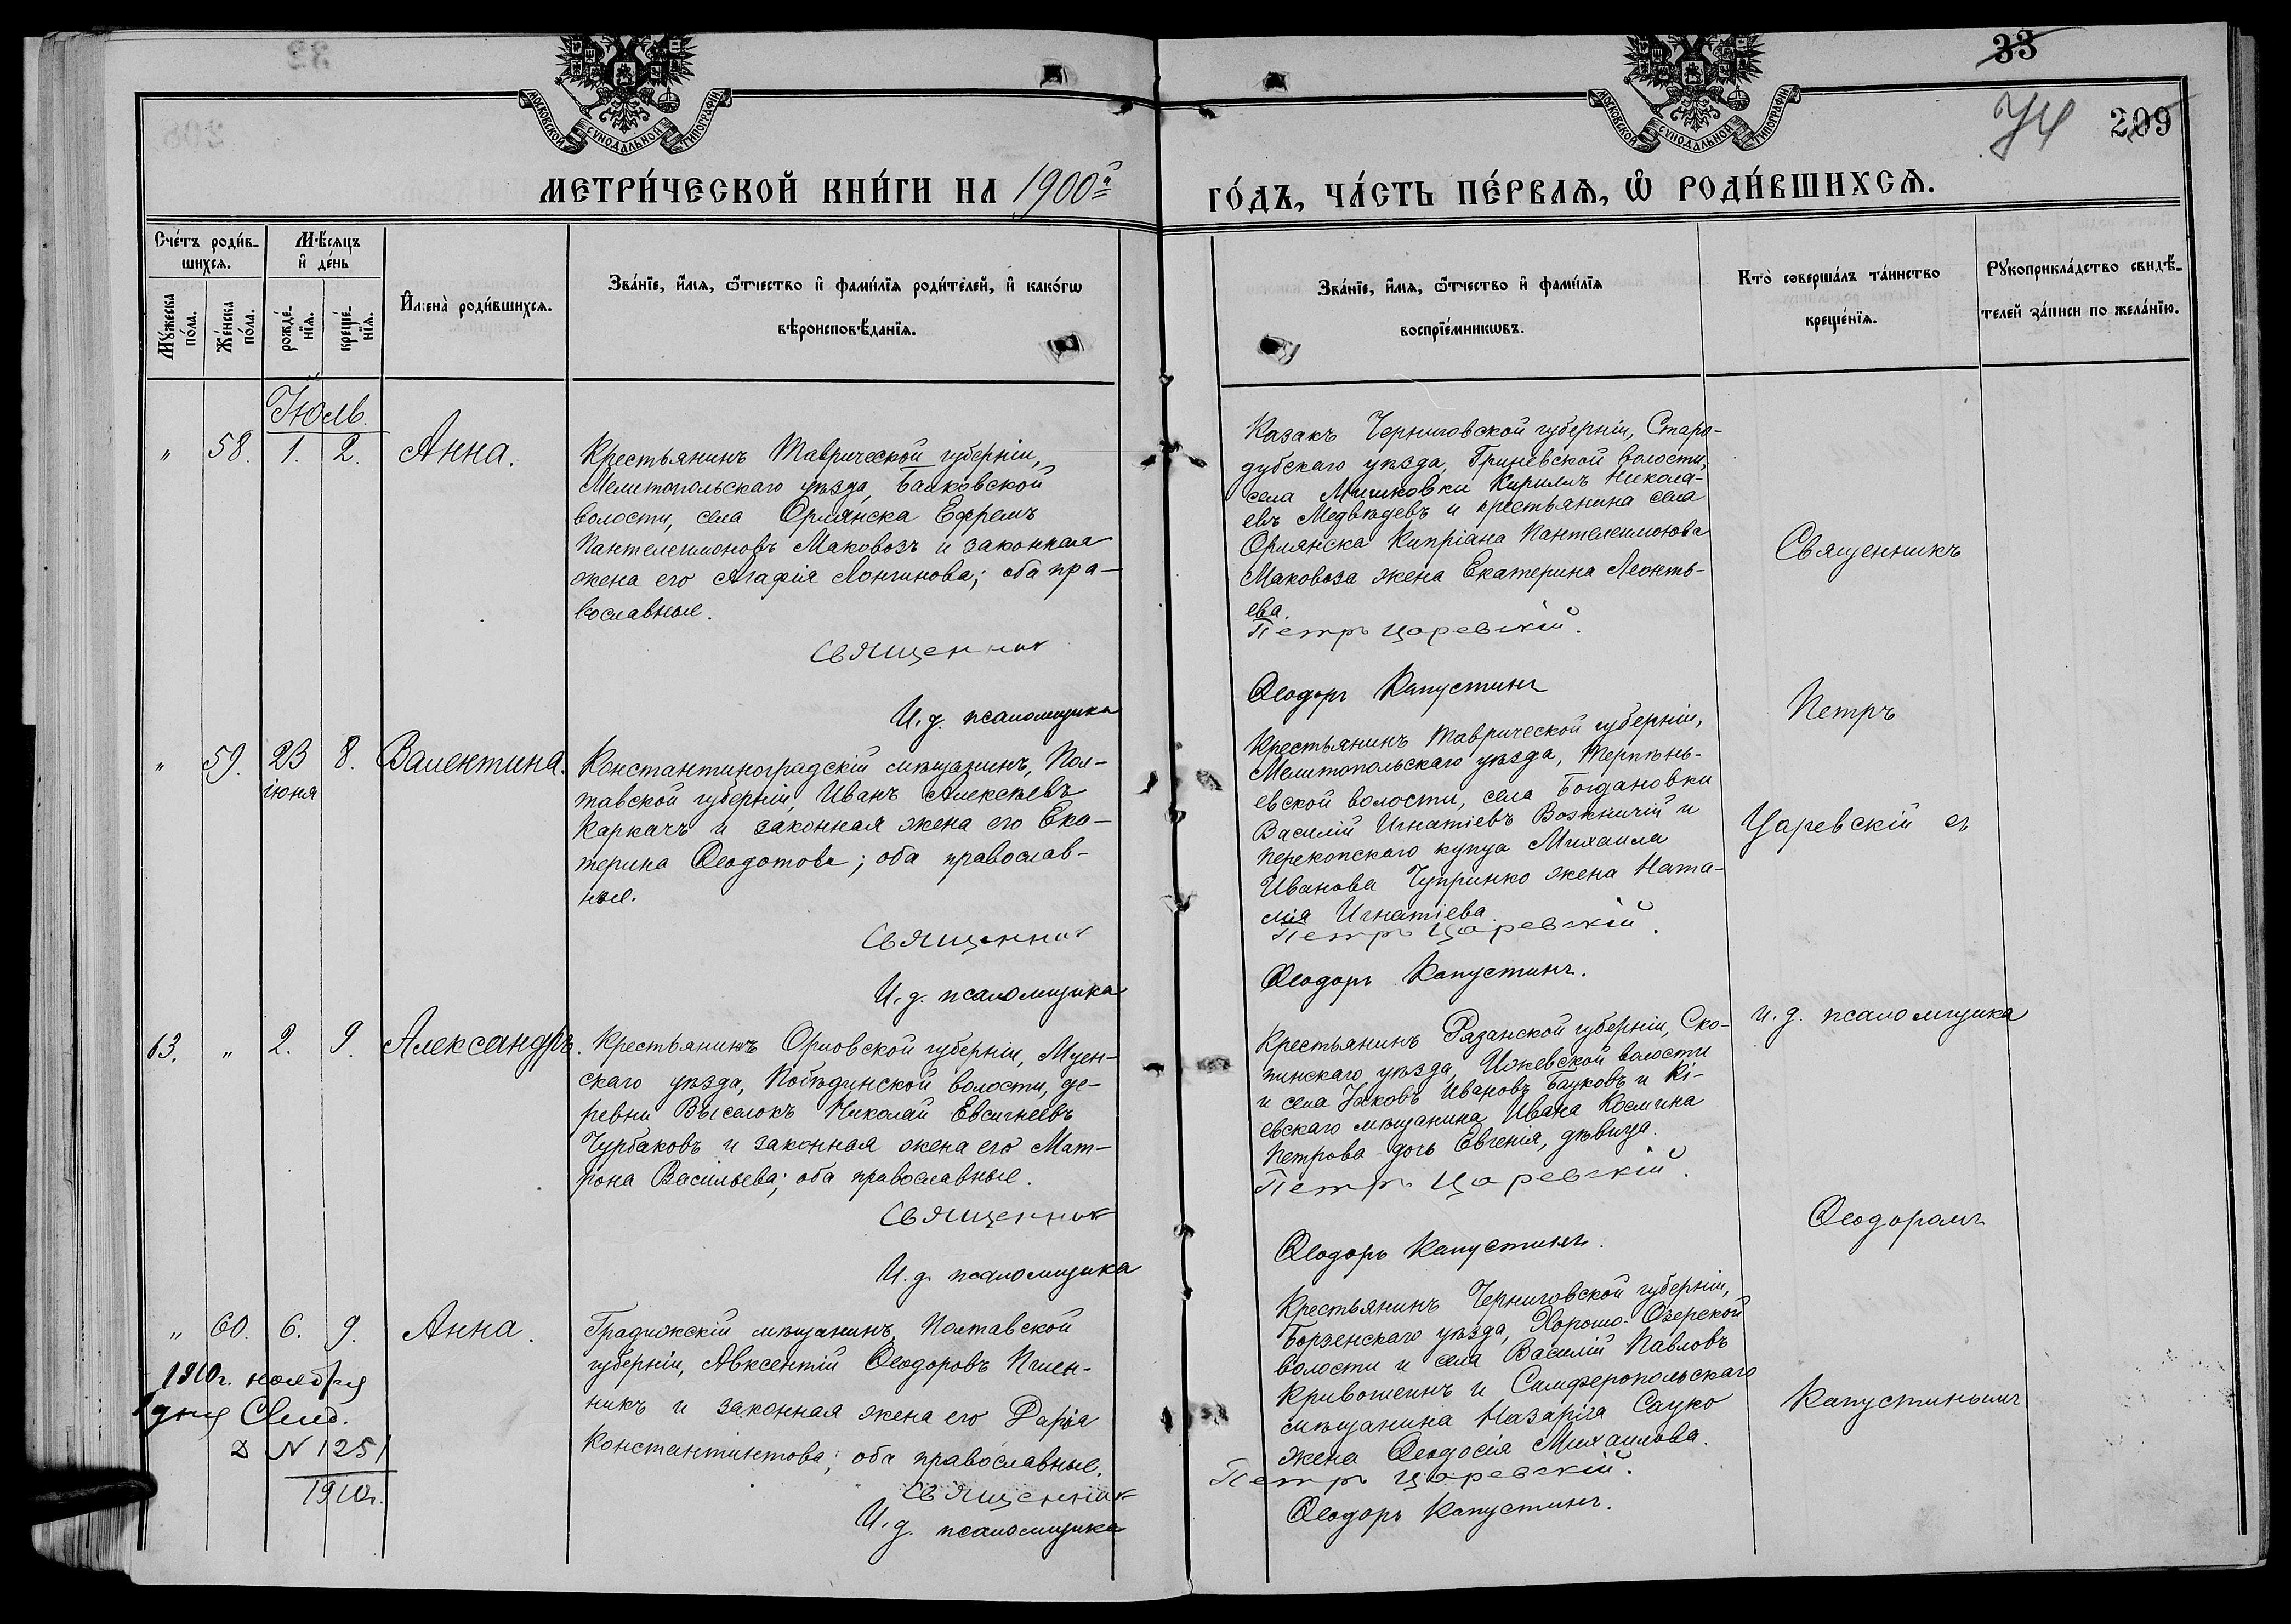 33
74 209
МОСКОВСКОЙ СѴНОДАЛЬНОЙ ТИПОГРАФІИ
МОСКОВСКОЙ СѴНОДАЛЬНОЙ ТИПОГРАФІИ
МЕТРИ́ЧЕСКОЙ КНИ́ГИ НА 1900й ГО́ДЪ, ЧА́СТЬ ПЕ́РВАѦ, Ѡ РОДИ́ВШИХСѦ.
Сче́тъ роди́в-
шихсѧ.
Мꙋ́жеска по́ла.
Же́нска по́ла.
Мѣ́сѧцъ
и҆ де́нь
рожде́-
нїѧ.
креще́-
нїѧ.
И҆мена̀ роди́вшихсѧ.
Зва́нїе, и҆́мѧ, ѻ҆́тчество и҆ фами́лїѧ роди́телей, и҆ како́гѡ
вѣроисповѣ́данїѧ.
Зва́нїе, и҆́мѧ, ѻ҆́тчество и҆ фами́лїѧ
воспрїе́мникѡвъ.
Кто̀ соверша́лъ та́инство
креще́нїѧ.
Рꙋкоприкла́дство свидѣ́-
телей за́писи по жела́нїю.
Іюль.
" 58. 1. 2. Анна.
Крестьянинъ Таврической губерніи,
Мелитопольскаго уѣзда, Балковской
волости, села Орлянска Ефремъ
Пантелеимоновъ Маковозъ и законная
жена его Агафія Лонгинова; оба пра-
вославные.
Священник
И. д. псаломщика
Казакъ Черниговской губерніи, Старо-
дубскаго уѣзда, Гриневской волости,
села Мишковки Кириллъ Никола-
евъ Медвѣдевъ и крестьянина села
Орлянска Кипріана Пантелеимонова
Маковоза жена Екатерина Леонть-
ева.
Петръ Царевскій.
Ѳеодоръ Капустинъ
" 59. 23 іюня 8. Валентина.
Константиноградскій мѣщанинъ, Пол-
тавской губерніи Иванъ Алексѣевъ
Каркачъ и законная жена его Ека-
терина Ѳеодотова; оба православ-
ные.
Священник
И. д. псаломщика
Крестьянинъ Таврической губерніи,
Мелитопольскаго уѣзда, Терпѣнь-
евской волости, села Богдановки
Василій Игнатіевъ Возничій и
перекопскаго купца Михаила
Иванова Чупринко жена Ната-
лія Игнатіева.
Петръ Царевскій.
Ѳеодоръ Капустинъ.
63. " 2. 9. Александръ.
Крестьянинъ Орловской губерніи, Мцен-
скаго уѣзда, Побѣдинской волости, де-
ревни Выселокъ Николай Евсигнеевъ
Чурбаковъ и законная жена его Мат-
рона Васильева; оба православные.
Священник
И. д. псаломщика
Крестьянинъ Рязанской губерніи, Ско-
пинскаго уѣзда, Ижевской волости
и села Іаковъ Ивановъ Бауковъ и Кі-
евскаго мѣщанина Ивана Космина
Петрова дочь Евгенія, дѣвица.
Петръ Царевскій.
Ѳеодоръ Капустинъ.
" 60. 6. 9. Анна.
Градижскій мѣщанинъ, Полтавской
губерніи, Авксентій Ѳеодоровъ Пшен-
никъ и законная жена его Дарія
Константинова; оба православные.
Священник
И. д. псаломщика
Крестьянинъ Черниговской губерніи,
Борзенскаго уѣзда, Хорошо-Озерской
волости и села Василій Павловъ
Кривошеинъ и Симферопольскаго
мѣщанина Назарія Сауко
жена Ѳеодосія Михаилова.
Петръ Царевскій.
Ѳеодоръ Капустинъ.
1910г. ноября
дня Свид.
N 1251
1910г.
Священникъ
Петръ
Царевскій съ
и. д. псаломщика
Ѳеодоромъ
Капустинымъ